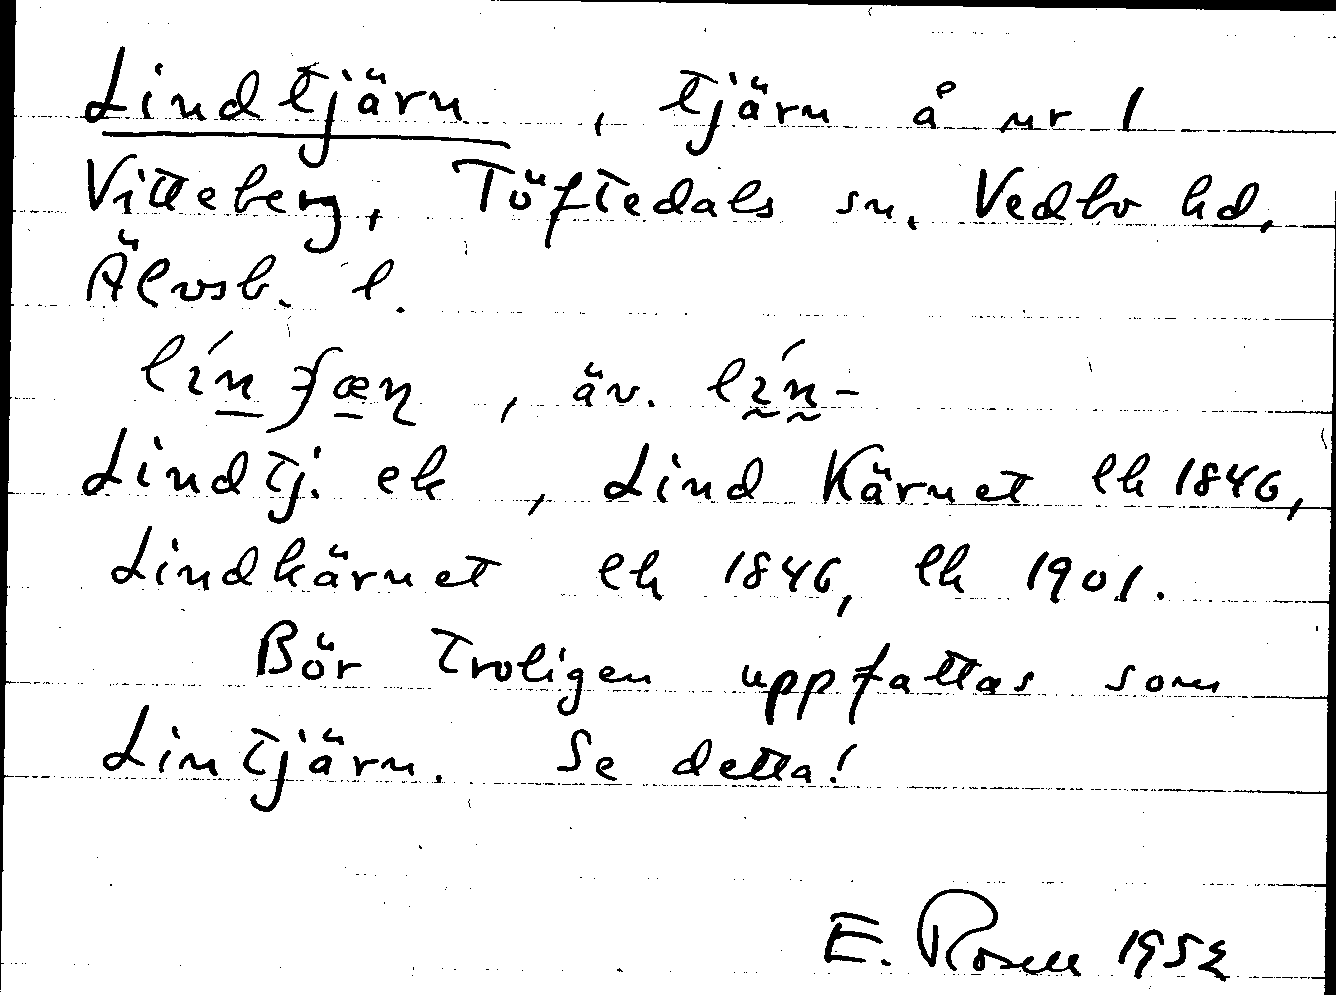 Lindtjärn, tjärn å nr 1
Vitteberg, Töftedals sn, Vedbo hd,
Älvsb. l.
lín ʃæɳ, äv. lín-
Lindtj. ek, Lind Kärnet lh 1846,
Lindkärnet lh 1846, lh 1901.
Bör troligen uppfattas som
Lintjärn. Se detta!
E. Rosell 1952